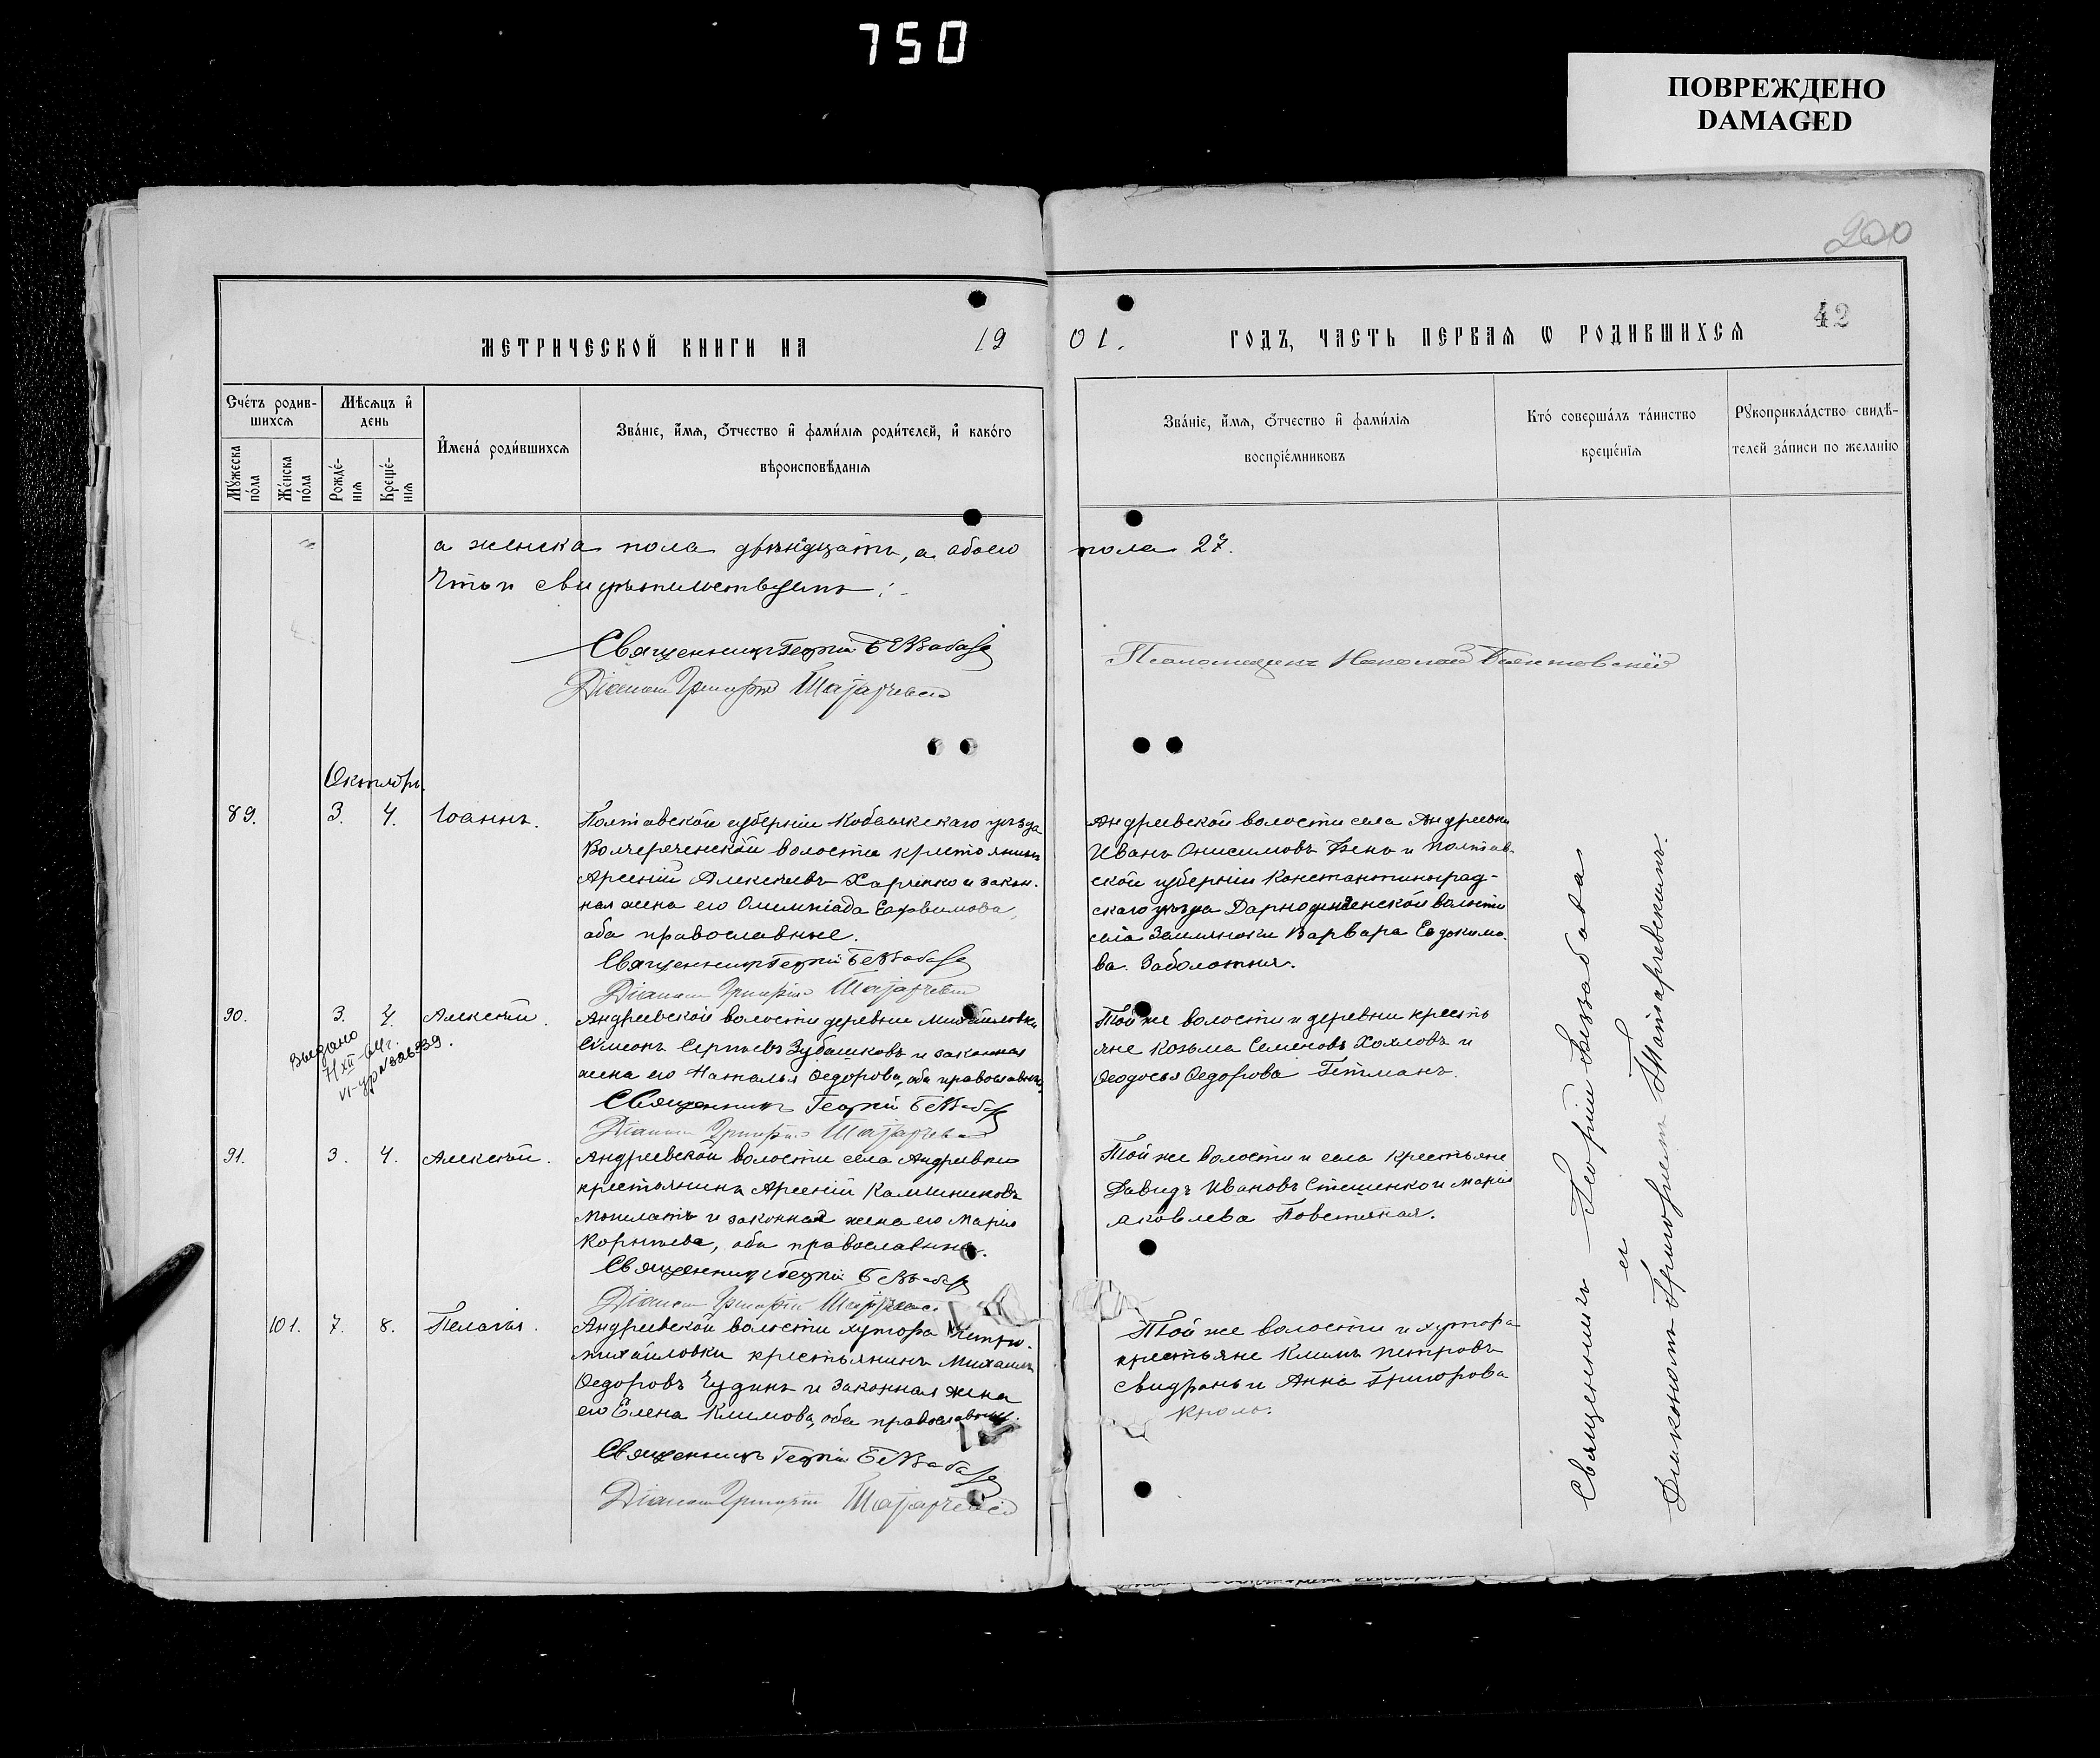 750
ПОВРЕЖДЕНО
DAMAGED
200
42
МЕТРИЧЕСКОЙ КНИГИ НА 1901. ГОДЪ, ЧАСТЬ ПЕРВАЯ Ѡ РОДИВШИХСЯ
Счетъ родив-
шихся
Мужеска
пола
Женска
пола
Мѣсяцъ и
день
Рожде-
нія
Креще-
нія
Имена родившихся
Званіе, имя, отчество и фамилія родителей, и какого
вѣроисповѣданія
Званіе, имя, отчество и фамилія
воспріемниковъ
Кто совершалъ таинство
крещенія
Рукоприкладство свидѣ-
телей записи по желанію
а женска пола двѣнадцать, а обоего пола 27.
свидѣтельствуемъ:
Священникъ Георгій Беззабава
Діаконъ Григорій
Псаломщикъ Николай
Октябрь.
89. 3. 4. Іоаннъ.
Полтавской губерніи Кобелякскаго уѣзда
волости крестьянинъ
Арсеній Алексѣевъ Харченко и закон-
ная жена его Олимпіада Евфимова,
оба православные.
Священникъ Георгій Беззабава
Діаконъ Григорій
Андреевской волости села Андреевки
Иванъ Онисимовъ и Полтав-
ской губерніи Константиноград-
скаго уѣзда волости
села Варвара Евдокимо-
ва Заболотняя.
90. 3. 4. Алексѣй.
Выдано
XII-64г.
Андреевской волости деревни Михайловки
Сѵмеонъ Сергѣевъ Зубашковъ и законная
жена его Наталья Ѳедорова, оба православные.
Священникъ Георгій Беззабава
Діаконъ Григорій
Той же волости и деревни кресть
яне Козьма Семеновъ Хохловъ и
Ѳеодосья Ѳедорова Гетманъ.
91. 3. 4. Алексѣй.
Андреевской волости села Андреевки
крестьянинъ Арсеній
и законная жена его Марія
Корнѣева, оба православные.
Священникъ Георгій Беззабава
Діаконъ Григорій
Той же волости и села крестьяне
Давидъ Ивановъ Стешенко и Марія
Яковлева
101. 7. 8. Пелагія.
Андреевской волости хутора Петро-
михайловки крестьянинъ Михаилъ
Ѳедоровъ Чудинъ и законная жена
его Елена Климова, оба православные.
Священникъ Георгій Беззабава
Діаконъ Григорій
Той же волости и хутора
крестьяне Климъ Петровъ
и Анна Григорова
Священникъ Георгій Беззабава
и
Діаконъ Григорій